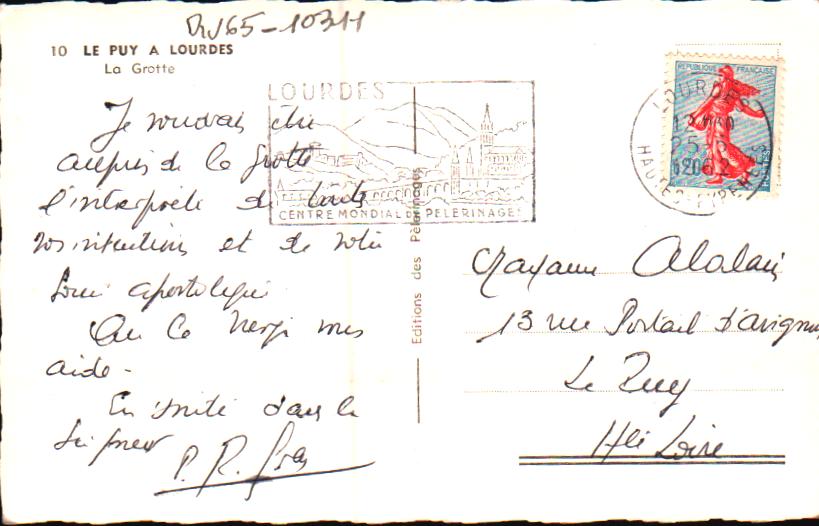 RV65-10311
10 LE PUY A LOURDES
La Grotte
Je voudrais être
auprès de la grotte
l'interprète de toutes
vos intentions et de votre
souci apostolique
Que la Vierge nous
aide -
En unité dans le
Seigneur
P. R.
LOURDES
CENTRE MONDIAL DE PELERINAGES
Editions des Pèlerinages
REPUBLIQUE FRANÇAISE
LOURDES
HAUTES-PYRENEES
13 rue Portail d'Avignon
Le Puy
Hte Loire